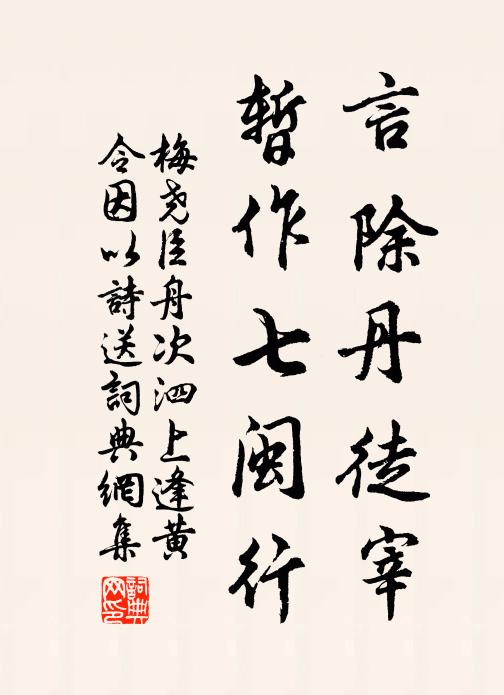 言除丹徒宰
暫作七闽行
梅尧臣舟次泗上逢黄
令因以詩送詞典網集
詞典网印